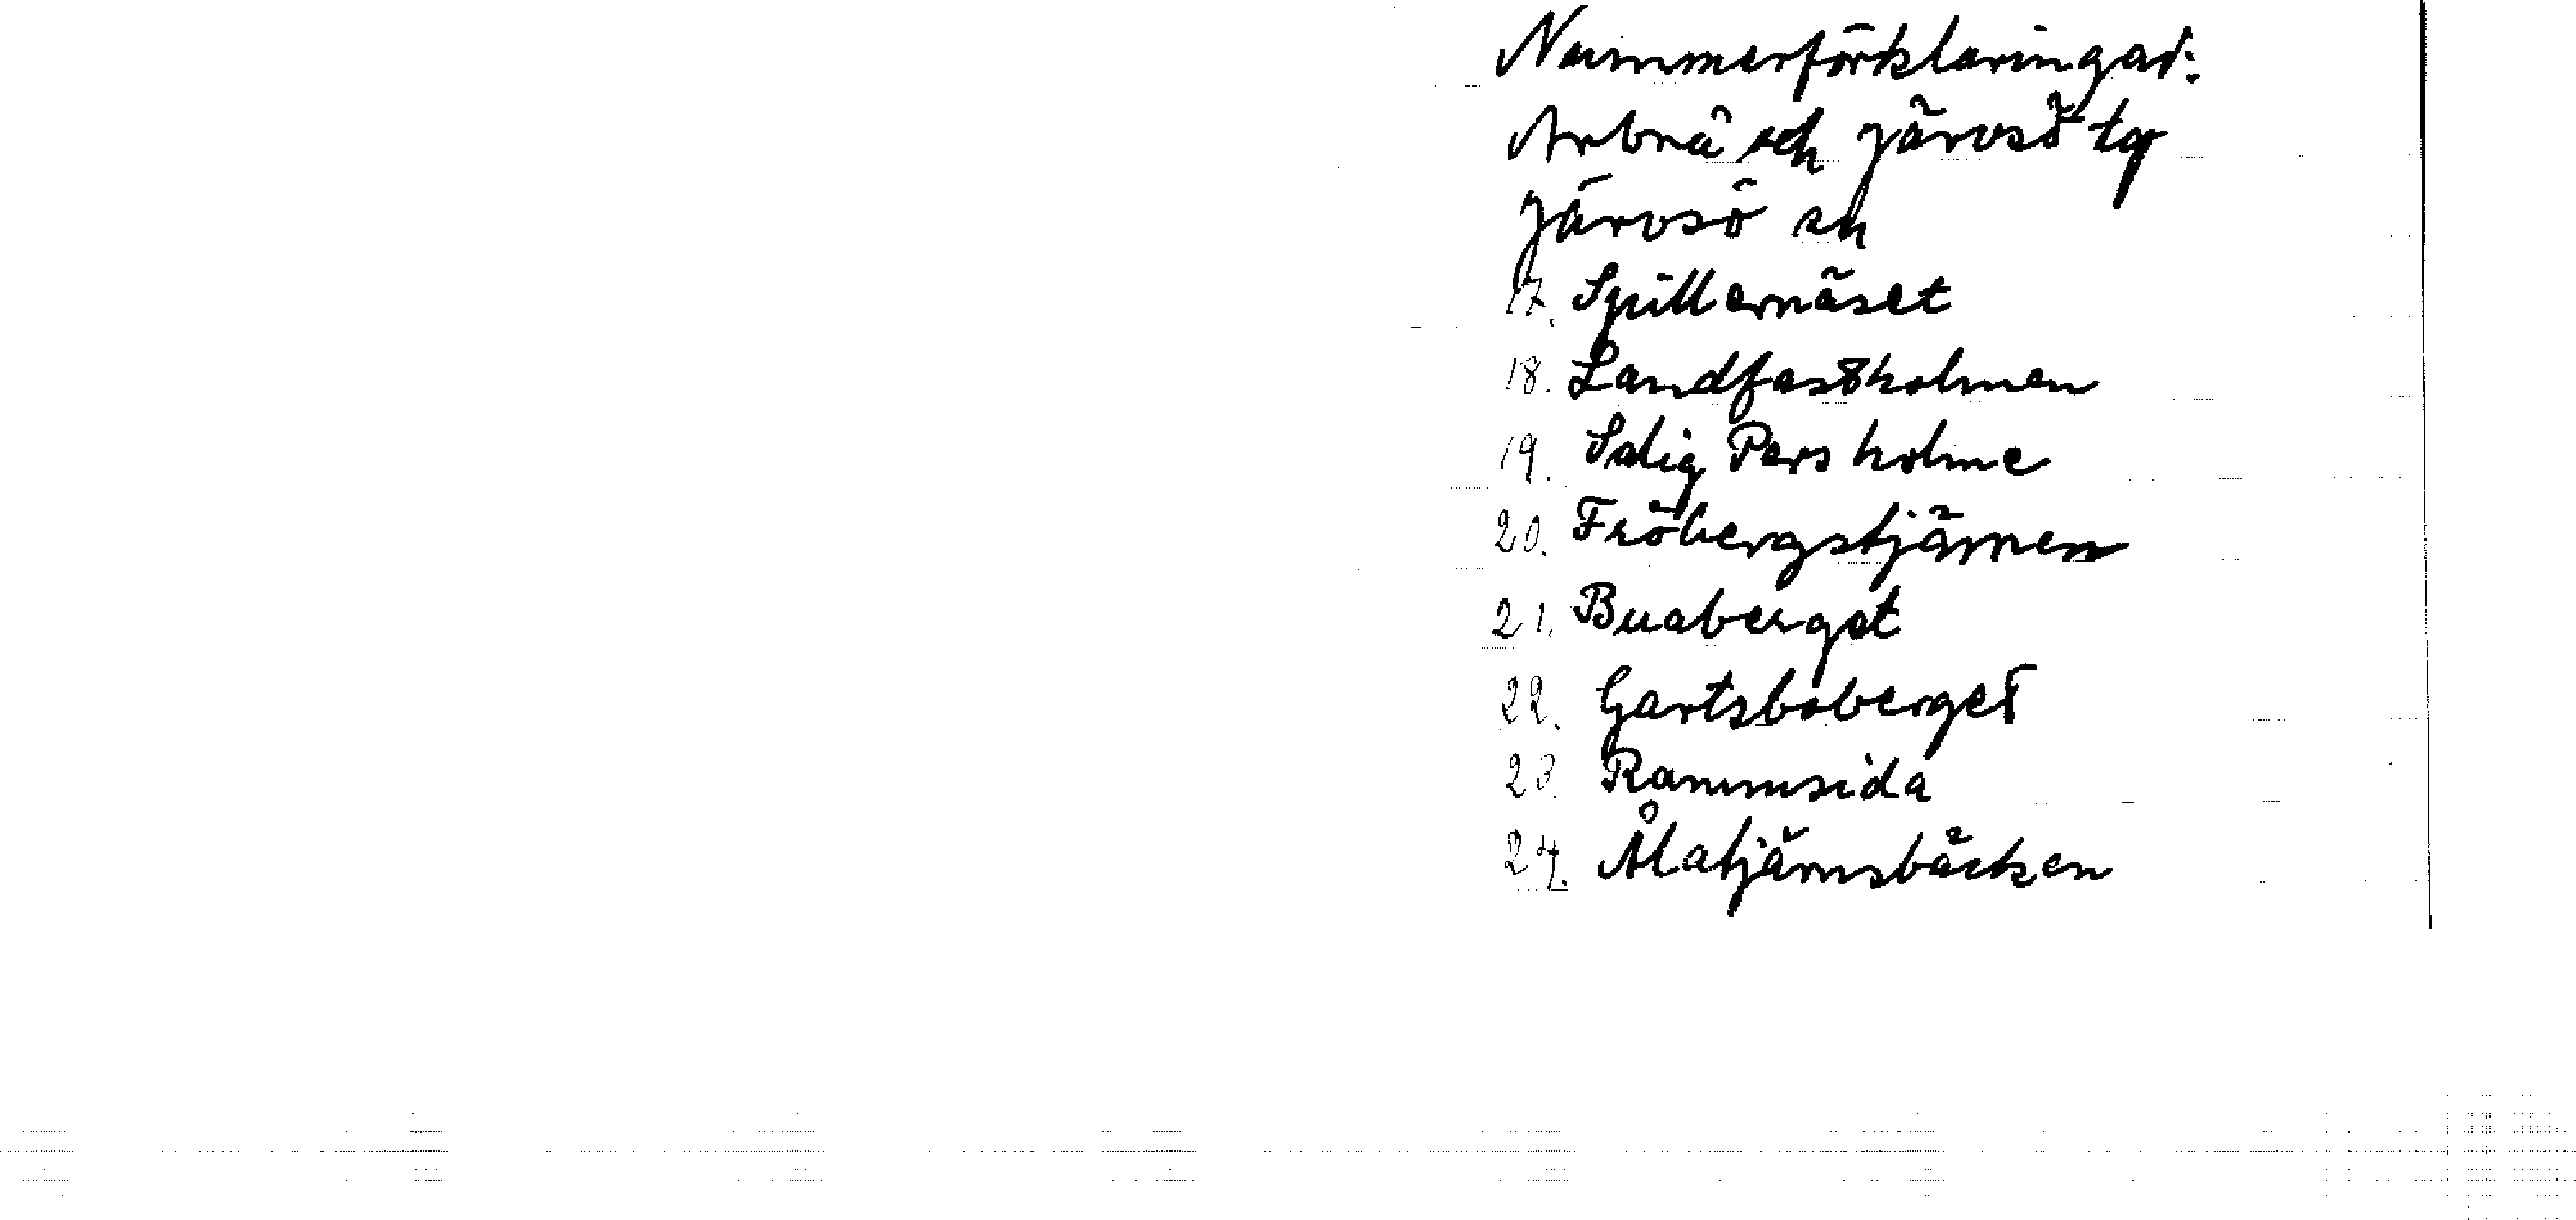 Nummerförklaringar:
Arbrå och Järvsö tg
Järvsö sn
17. Spillernäset
18. Landfastholmen
19. Salig Pers holme
20. Fröbergstjärnen
21. Buaberget
22. Gartsboberget
23. Rammsida
24. Ålatjärnsbäcken